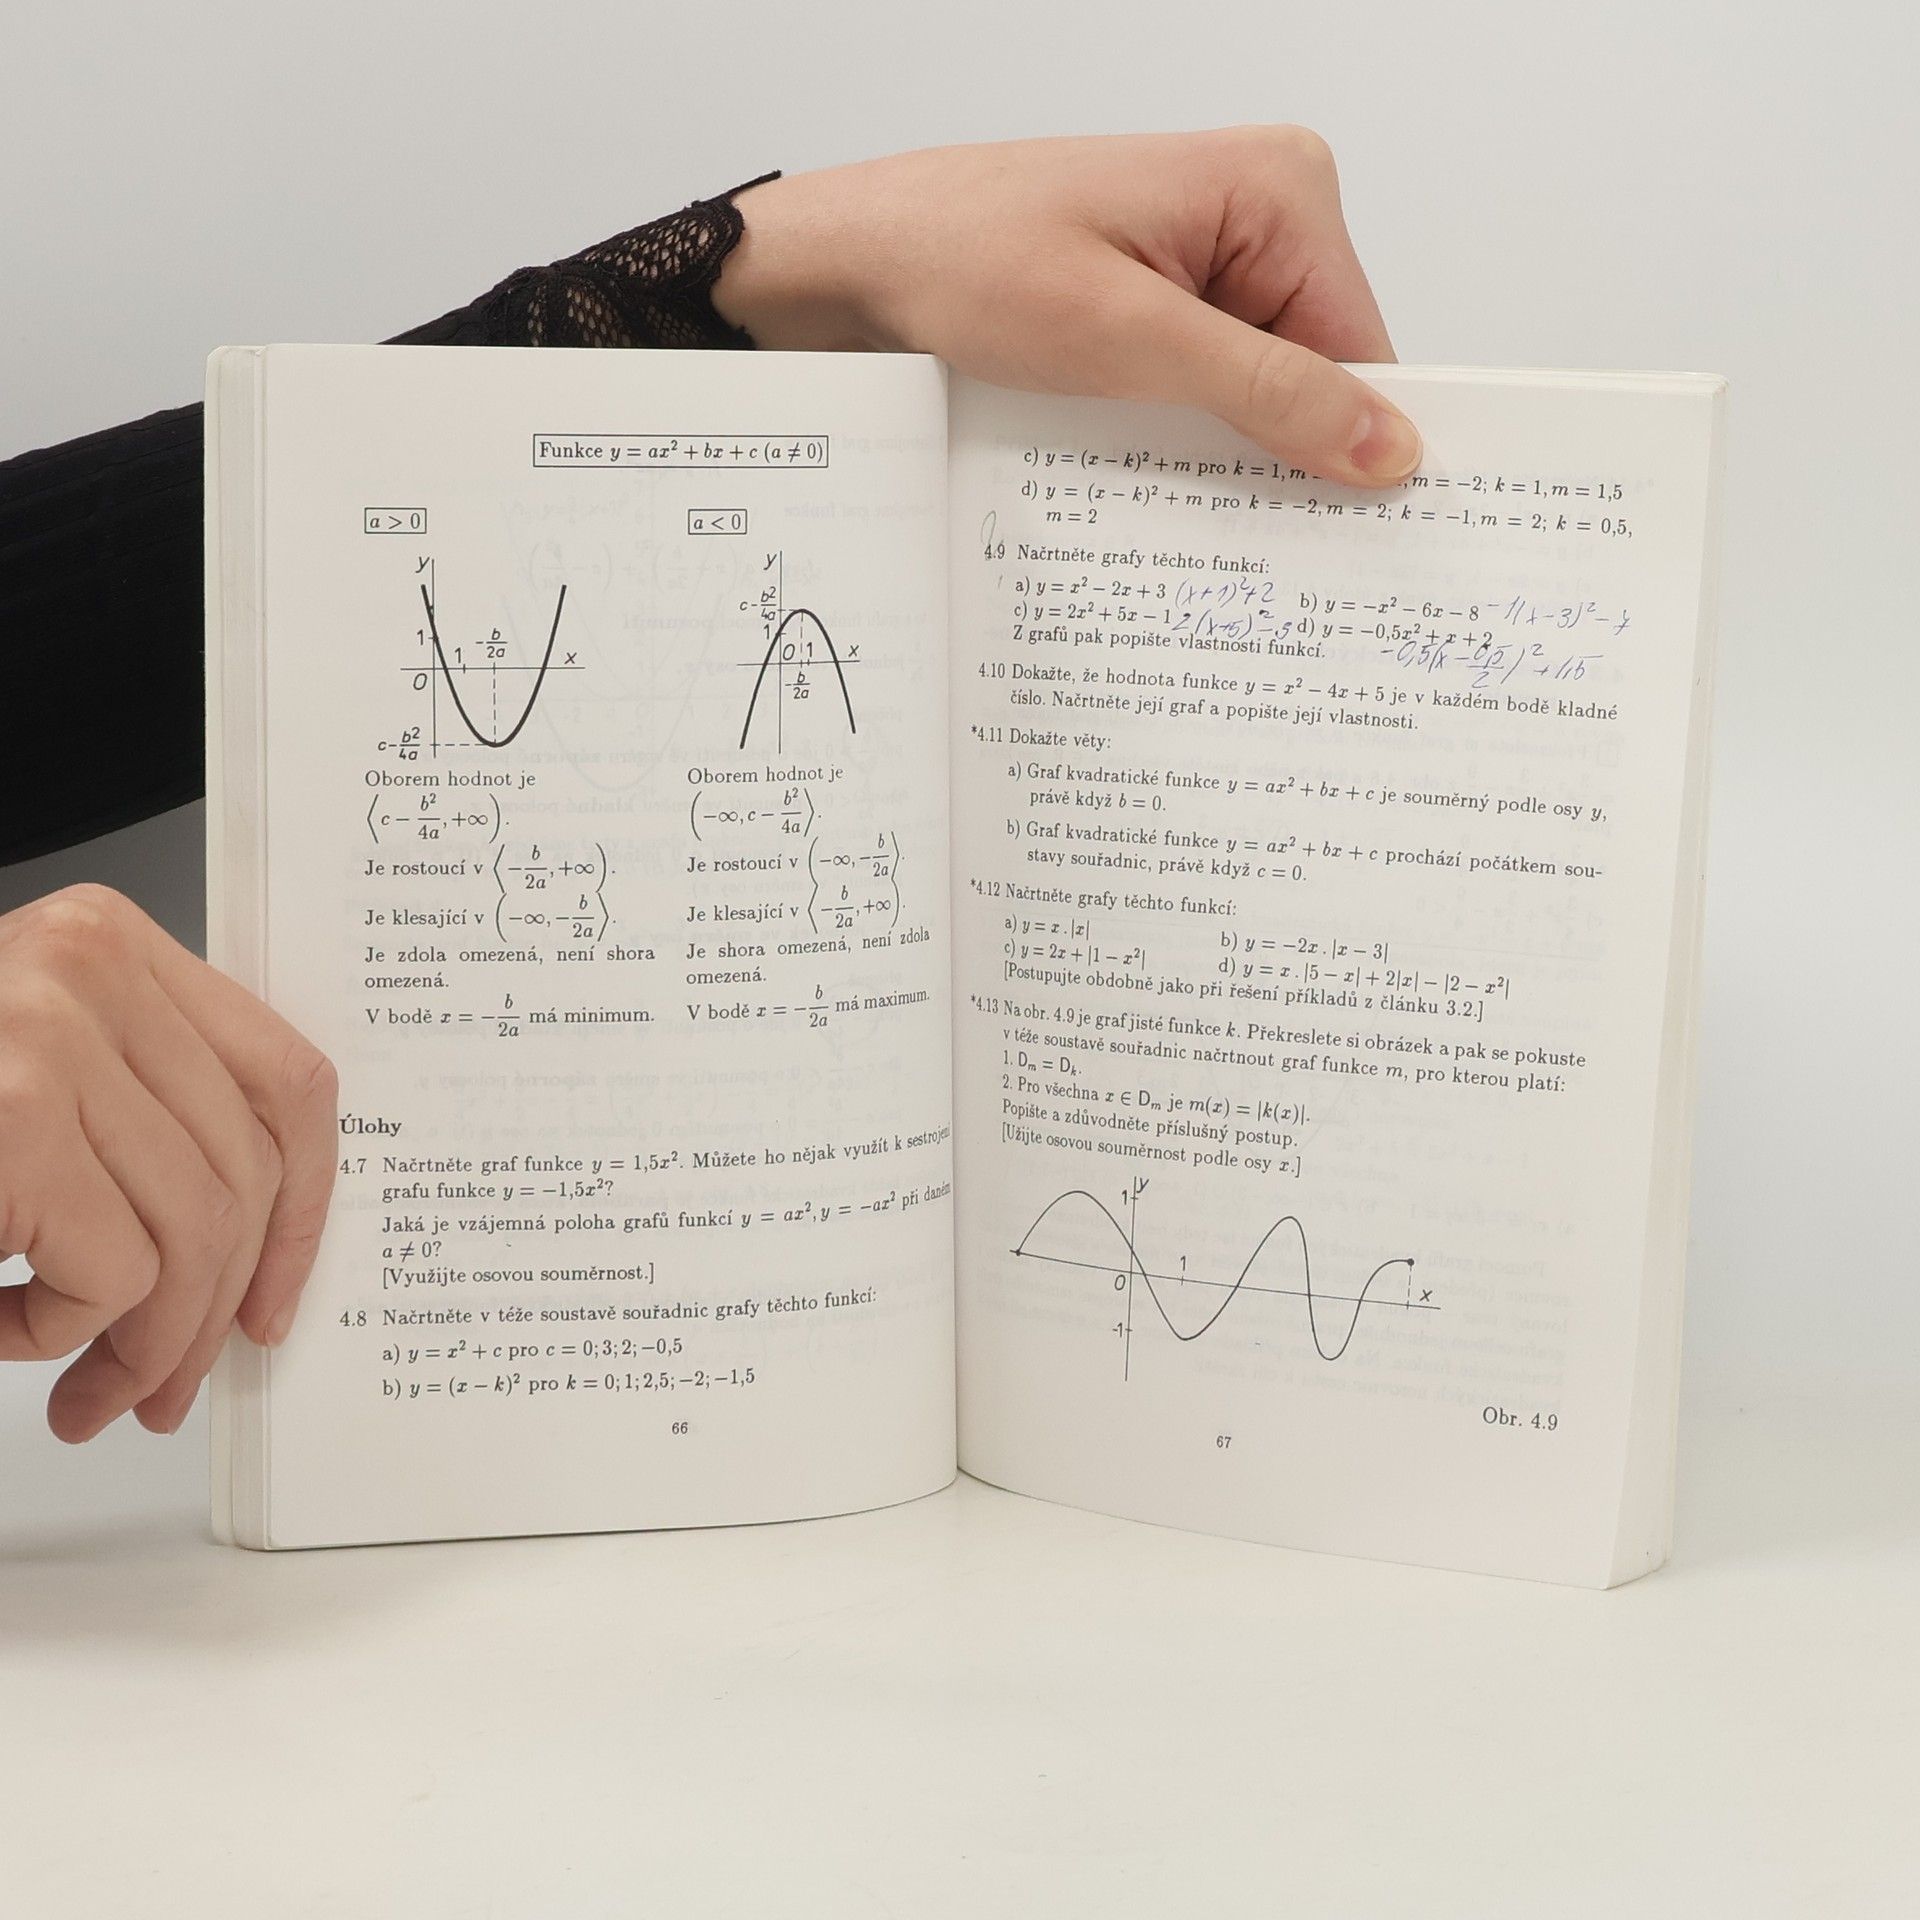 Funkce y = ax² + bx + c (a ≠ 0)
a > 0
a < 0
y
1
1
-b/2a
x
0
c-b²/4a
y
c-b²/4a
1
0
1
x
-b/2a
Oborem hodnot je
⟨c − b²/4a, +∞).
Je rostoucí v ⟨−b/2a, +∞).
Je klesající v (−∞, −b/2a⟩.
Je zdola omezená, není shora
omezená.
V bodě x = −b/2a má minimum.
Oborem hodnot je
(−∞, c − b²/4a⟩.
Je rostoucí v (−∞, −b/2a⟩.
Je klesající v ⟨−b/2a, +∞).
Je shora omezená, není zdola
omezená.
V bodě x = −b/2a má maximum.
Úlohy
4.7 Načrtněte graf funkce y = 1,5x². Můžete ho nějak využít k sestrojení
grafu funkce y = −1,5x²?
Jaká je vzájemná poloha grafů funkcí y = ax², y = −ax² při daném
a ≠ 0?
[Využijte osovou souměrnost.]
4.8 Načrtněte v téže soustavě souřadnic grafy těchto funkcí:
a) y = x² + c pro c = 0; 3; 2; −0,5
b) y = (x − k)² pro k = 0; 1; 2,5; −2; −1,5
66
c) y = (x − k)² + m pro k = 1, m , m = −2; k = 1, m = 1,5
d) y = (x − k)² + m pro k = −2, m = 2; k = −1, m = 2; k = 0,5,
m = 2
4.9 Načrtněte grafy těchto funkcí:
a) y = x² − 2x + 3 (x+1)²+2 b) y = −x² − 6x − 8 -1(x-3)²-
c) y = 2x² + 5x − 1 2(x+5)²-3 d) y = −0,5x² + x + 2
Z grafů pak popište vlastnosti funkcí. -0,5(x-0,5/2)²+1,5
4.10 Dokažte, že hodnota funkce y = x² − 4x + 5 je v každém bodě kladné
číslo. Načrtněte její graf a popište její vlastnosti.
*4.11 Dokažte věty:
a) Graf kvadratické funkce y = ax² + bx + c je souměrný podle osy y,
právě když b = 0.
b) Graf kvadratické funkce y = ax² + bx + c prochází počátkem sou-
stavy souřadnic, právě když c = 0.
*4.12 Načrtněte grafy těchto funkcí:
a) y = x . |x| b) y = −2x . |x − 3|
c) y = 2x + |1 − x²| d) y = x . |5 − x| + 2|x| − |2 − x²|
[Postupujte obdobně jako při řešení příkladů z článku 3.2.]
*4.13 Na obr. 4.9 je graf jisté funkce k. Překreslete si obrázek a pak se pokuste
v téže soustavě souřadnic načrtnout graf funkce m, pro kterou platí:
1. Dₘ = Dₖ.
2. Pro všechna x ∈ Dₘ je m(x) = |k(x)|.
Popište a zdůvodněte příslušný postup.
[Užijte osovou souměrnost podle osy x.]
1
y
1
0
x
-1
Obr. 4.9
67